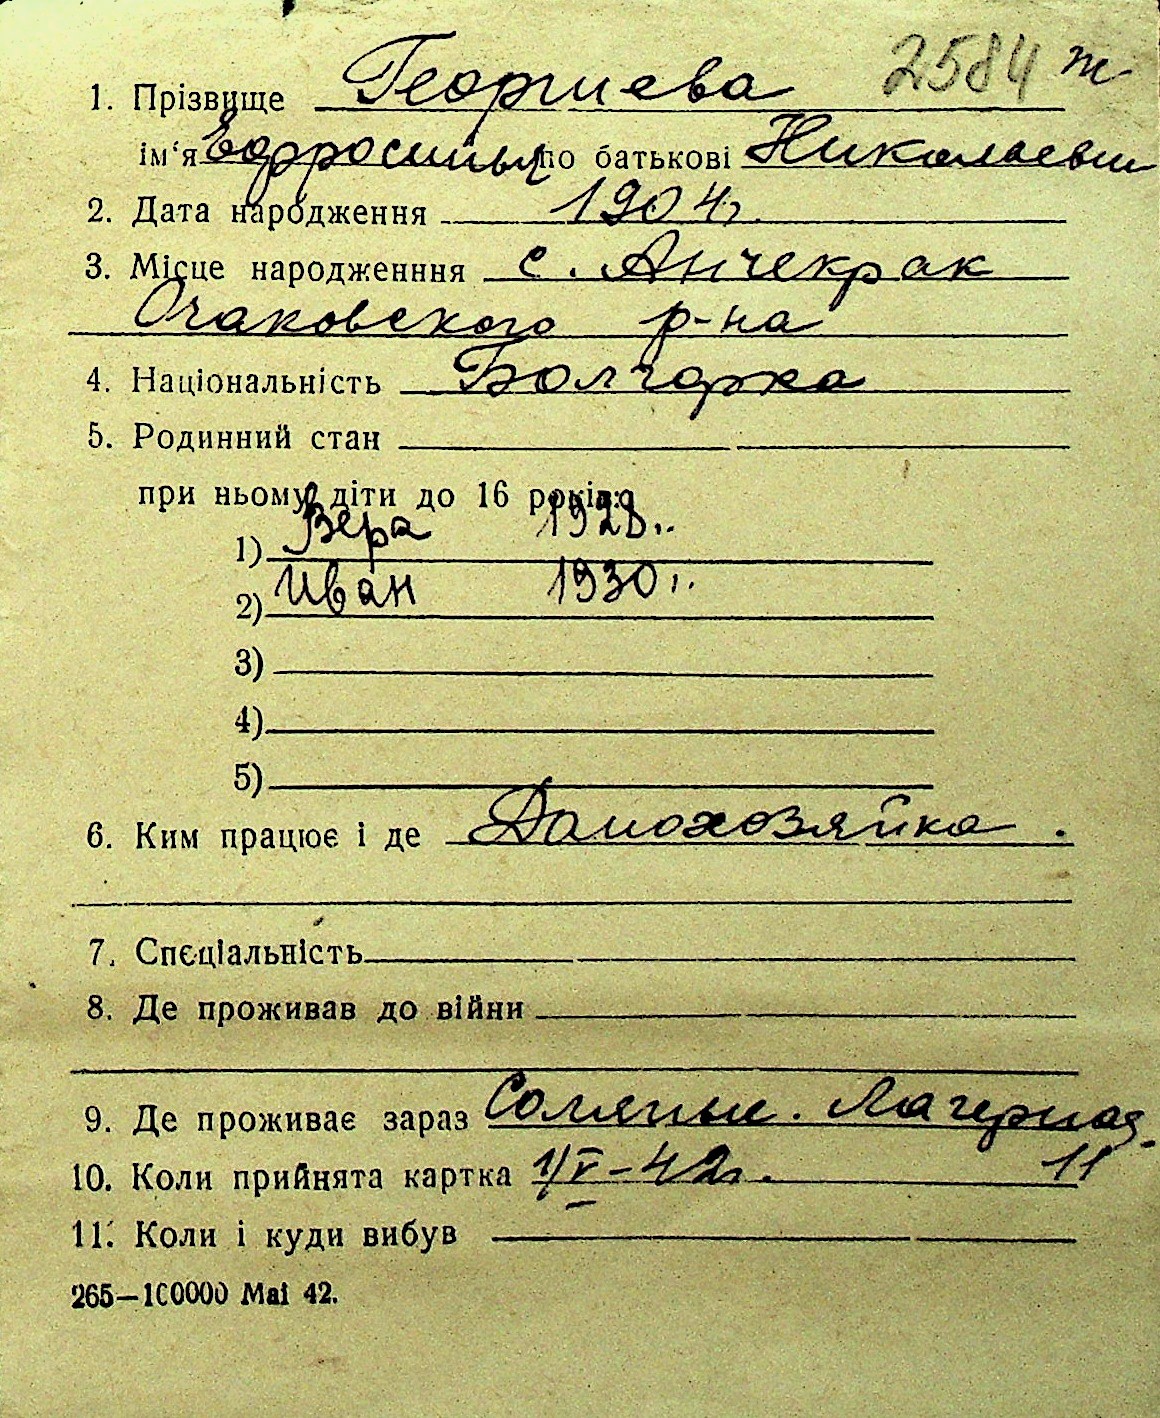 2584 т
1. Прізвище Георгиева
ім‘я Ефросинья по батькові Николаевн
2. Дата народження 1904 г.
3. Місце народженння с. Анчекрак
Очаковского р-на
4. Національність Болгарка
5. Родинний стан
при ньому діти до 16 років:
1) Вера 1928 г.
2) Иван 1930 г.
3)
4)
5)
6. Ким працює і де Домохозяйка.
7. Спєціальність
8. Де проживав до війни
9. Де проживає зараз Соляные. Лагерная
10. Коли прийнята картка 1/V-42 г. 11
11. Коли і куди вибув
265—100000 Маі 42.